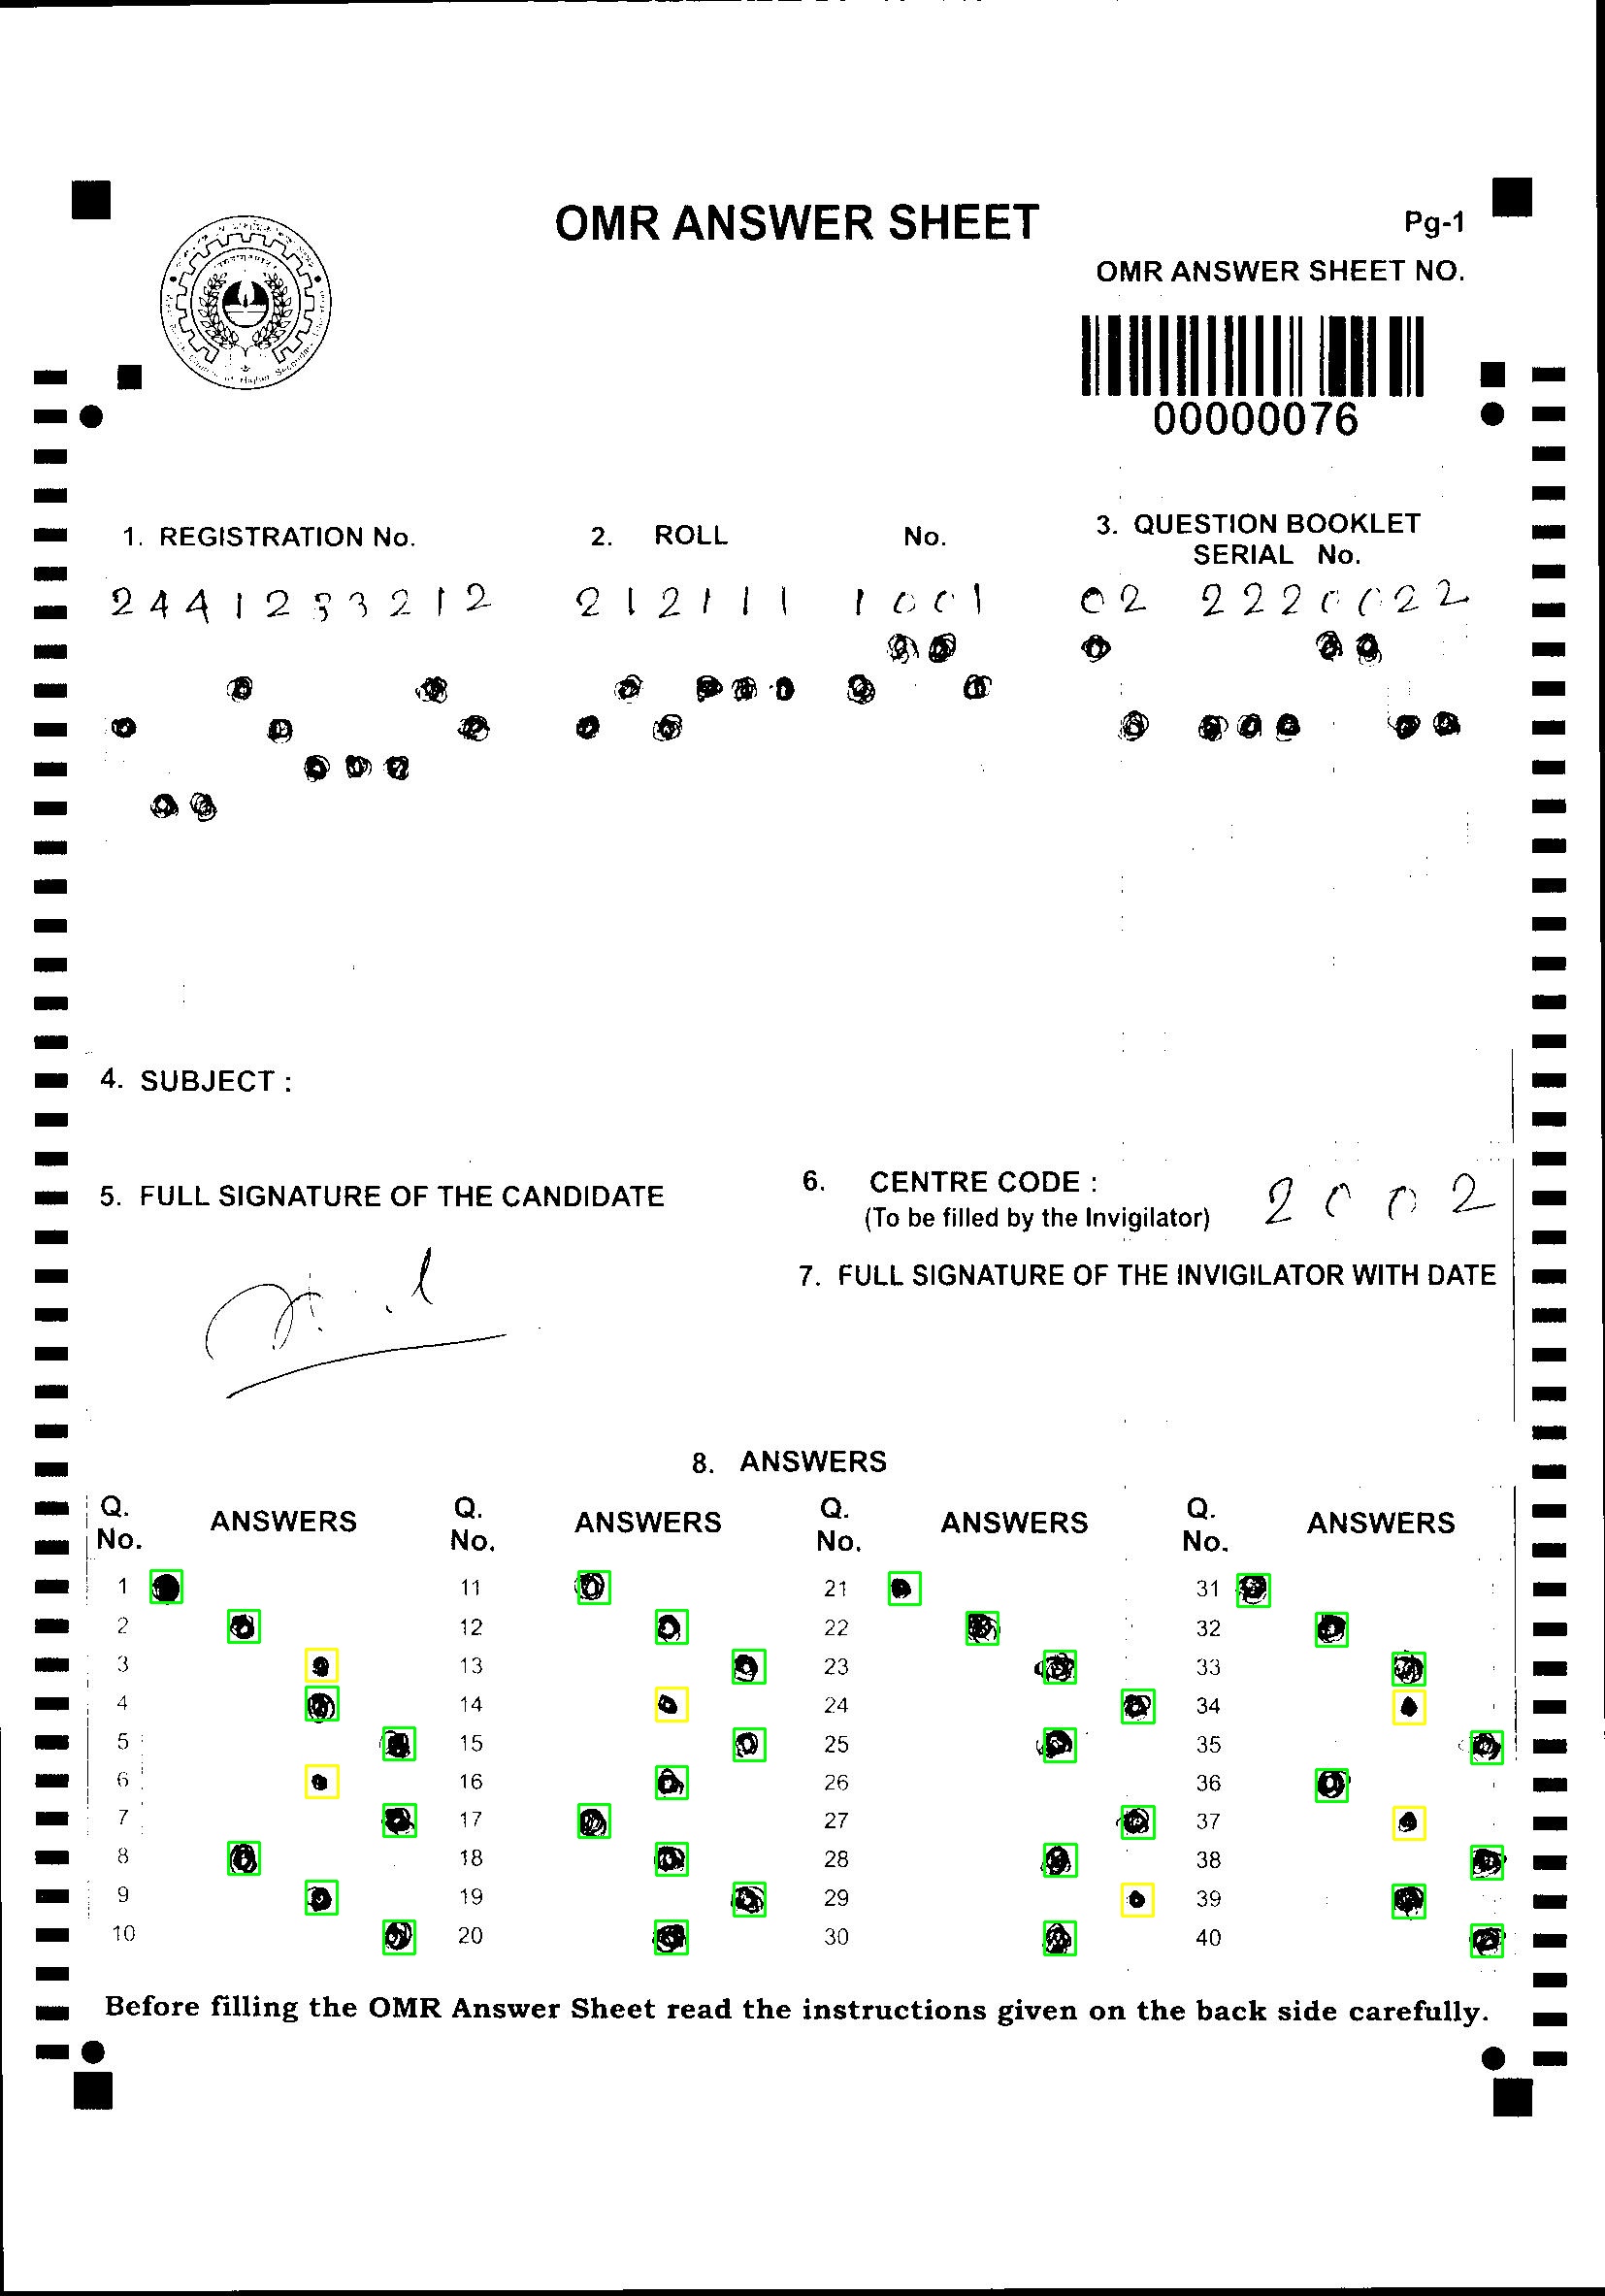 OMR ANSWER SHEET
Pg-1
OMR ANSWER SHEET NO.
00000076
1. REGISTRATION No.
2. ROLL No.
3. QUESTION BOOKLET
SERIAL No.
2441233212
212111 1001
02 2220022
4. SUBJECT :
5. FULL SIGNATURE OF THE CANDIDATE
6. CENTRE CODE : 2002
(To be filled by the Invigilator)
7. FULL SIGNATURE OF THE INVIGILATOR WITH DATE
8. ANSWERS
Q. No. ANSWERS Q. No. ANSWERS Q. No. ANSWERS Q. No. ANSWERS
1 11 21 31
2 12 22 32
3 13 23 33
4 14 24 34
5 15 25 35
6 16 26 36
7 17 27 37
8 18 28 38
9 19 29 39
10 20 30 40
Before filling the OMR Answer Sheet read the instructions given on the back side carefully.